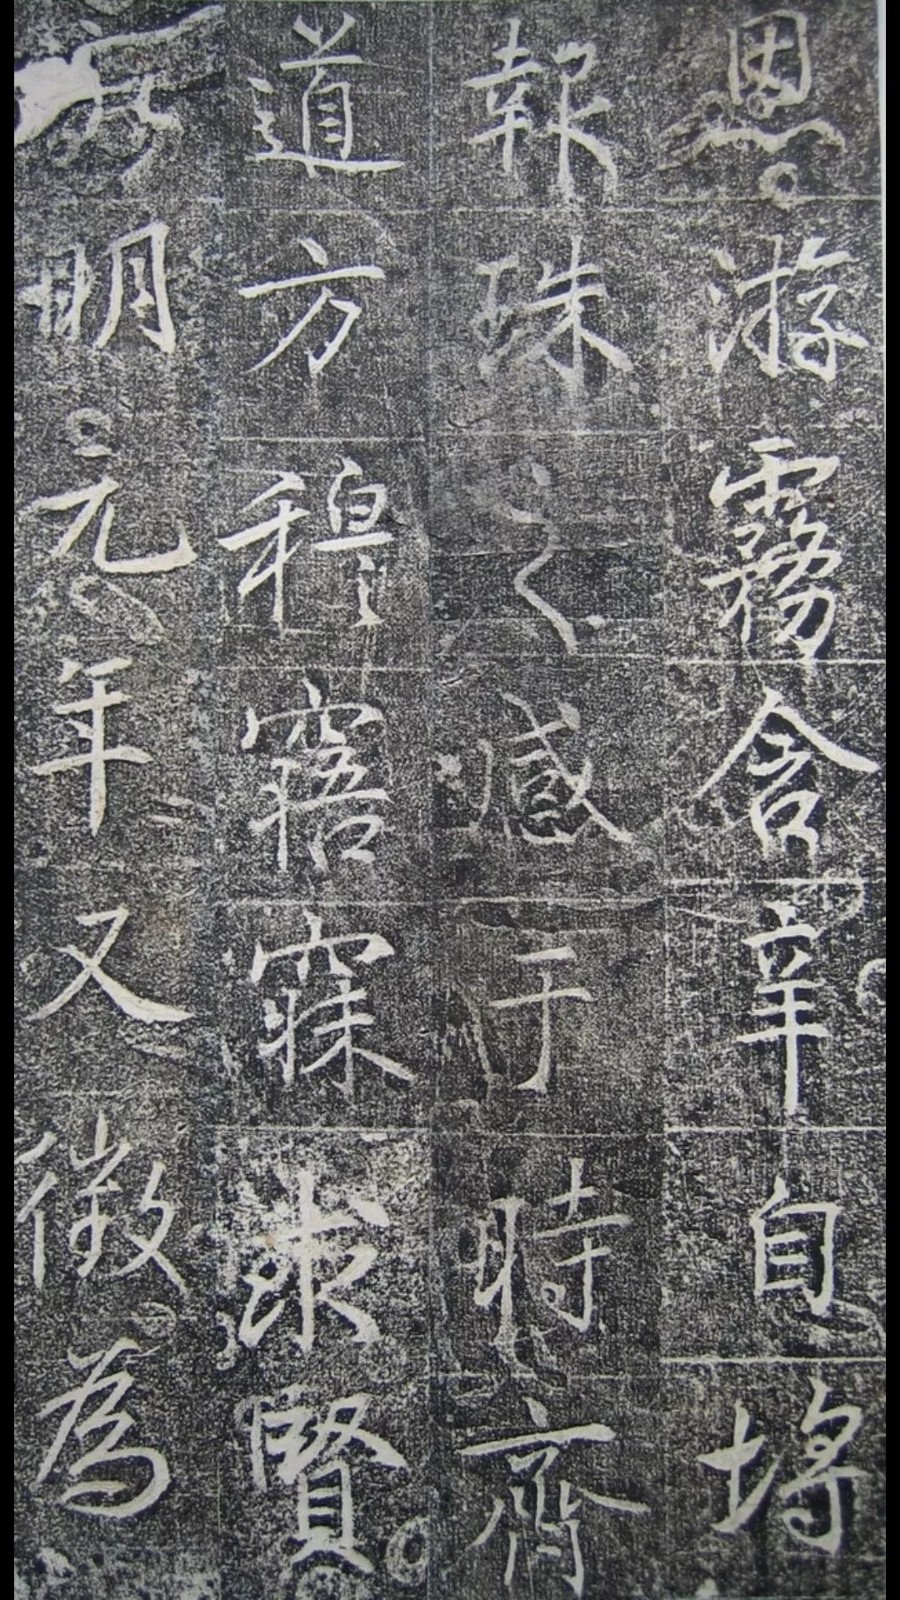 恩游霧含辛自埒
報珠之感于時齊
道方穆寤寐求賢
明元年又徵為